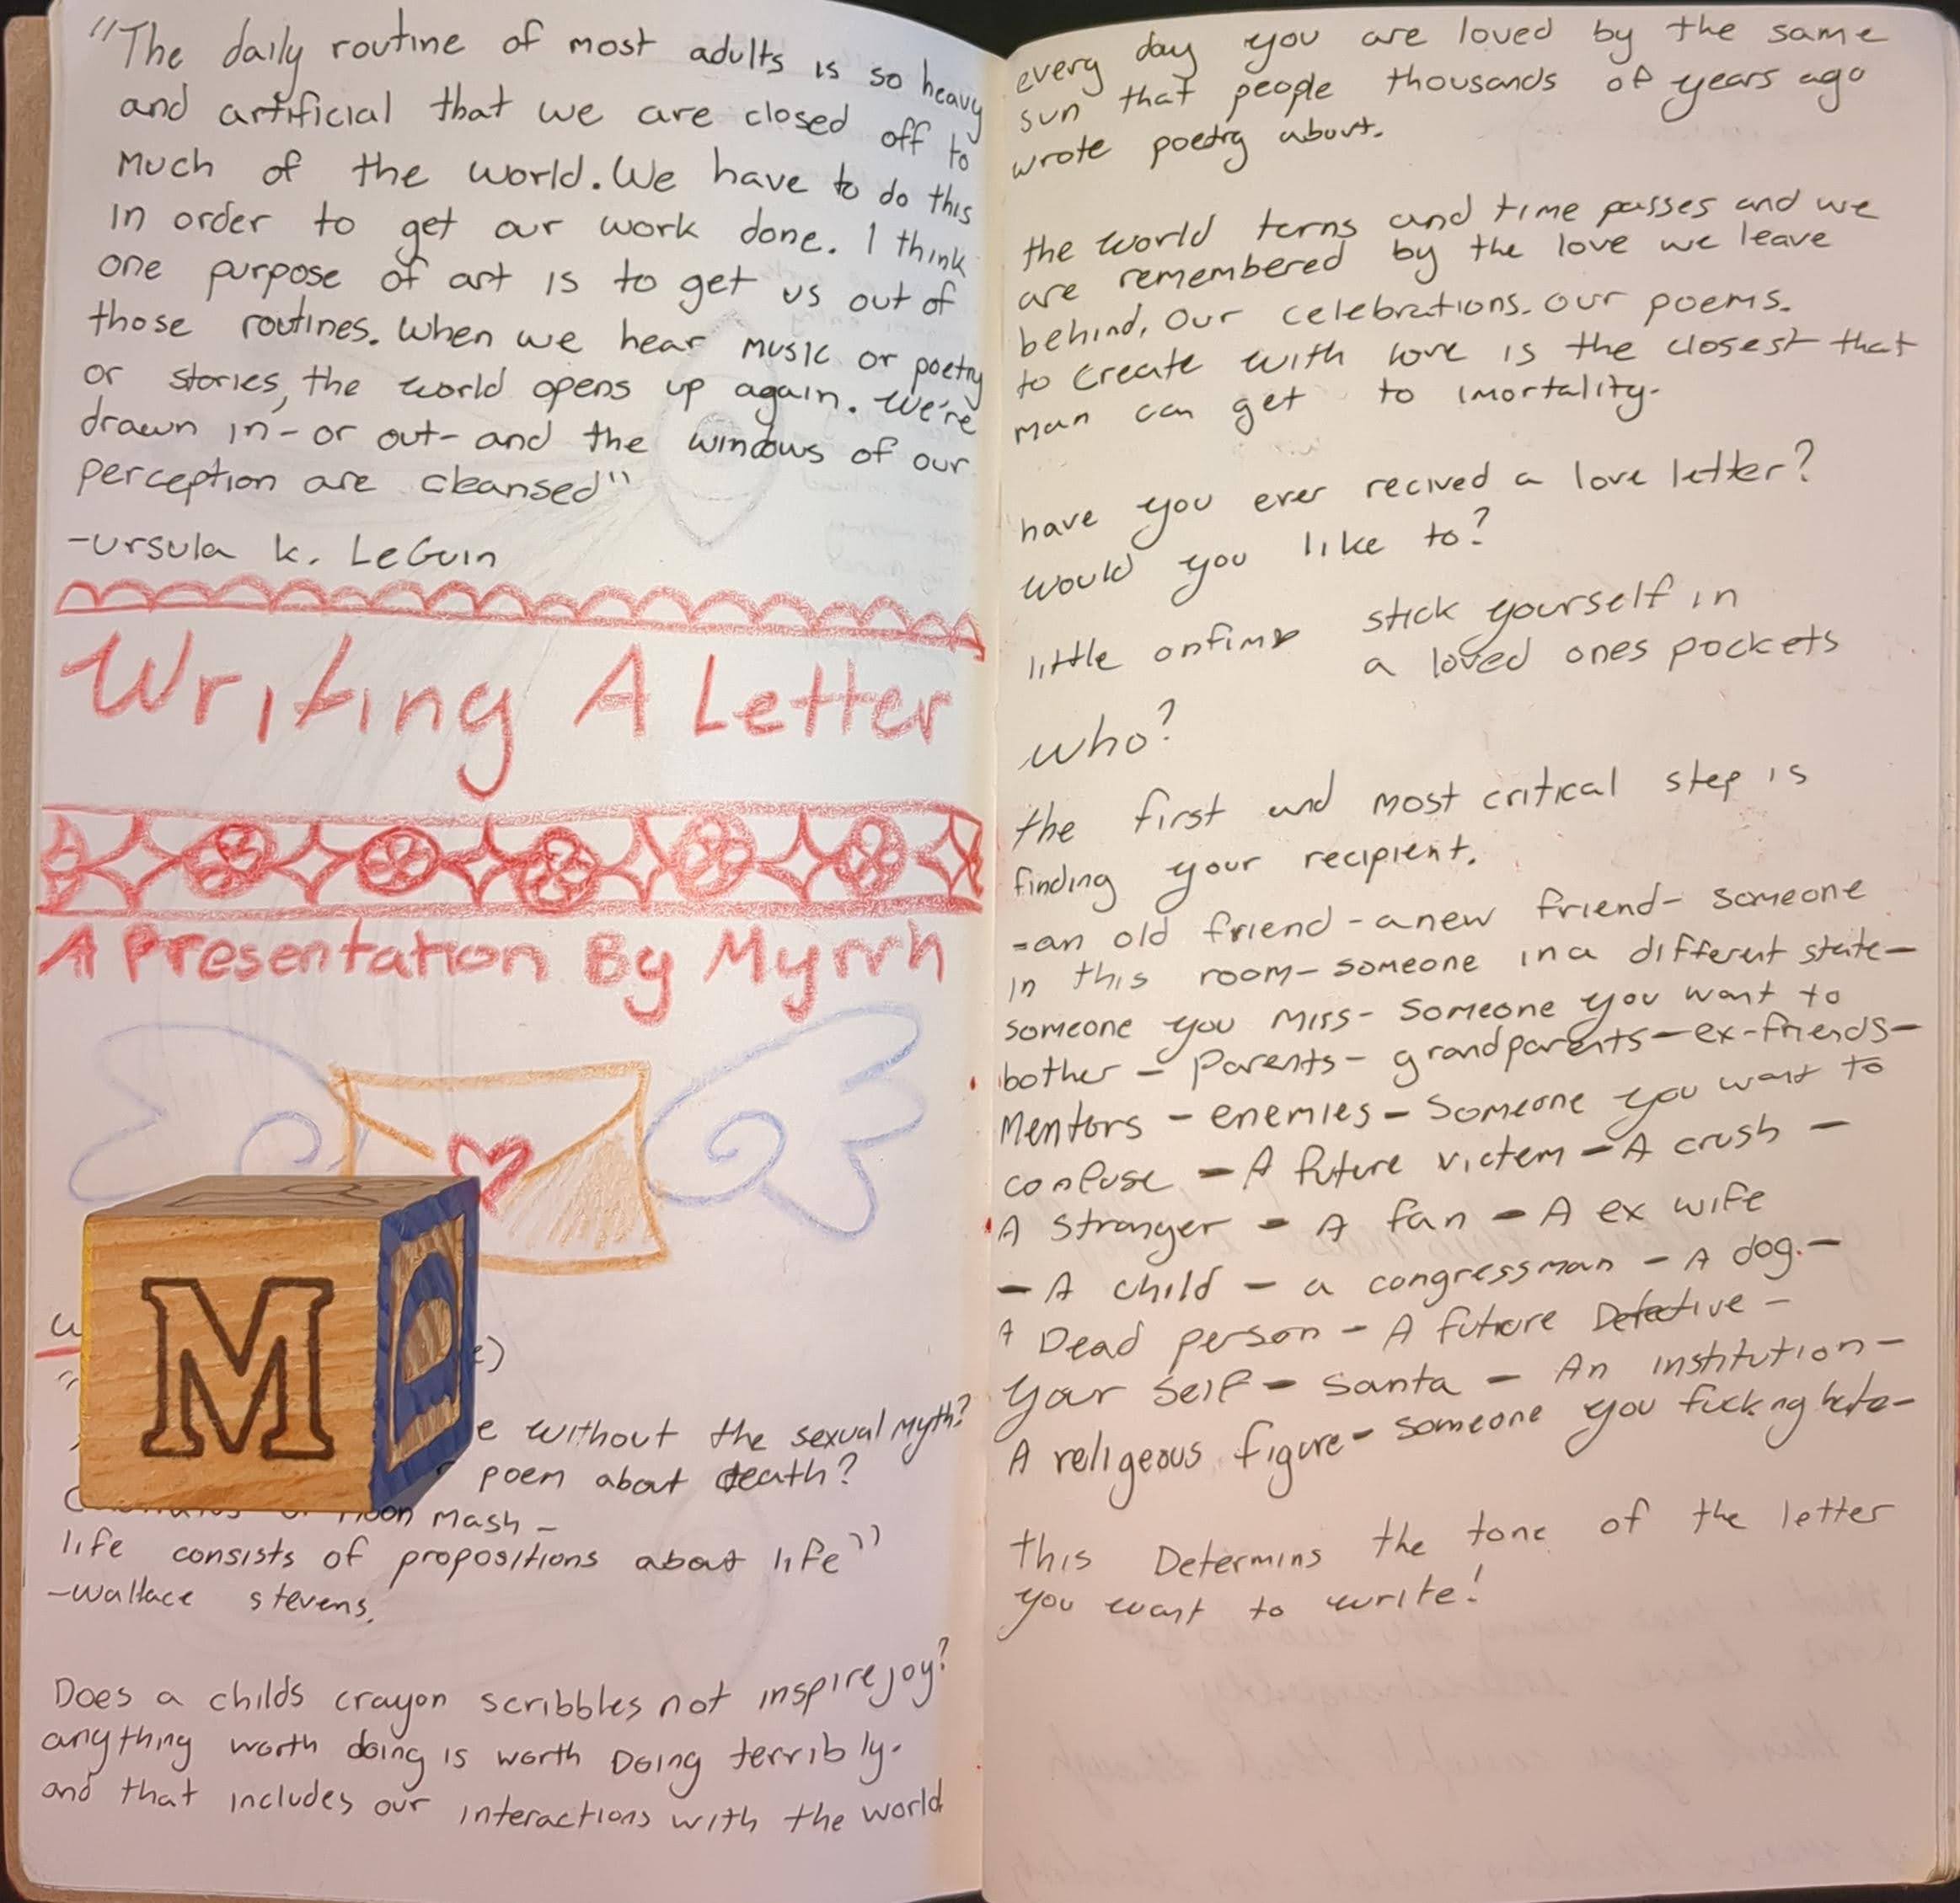 "The daily routine of most adults is so heavy
and artificial that we are closed off to
much of the world. We have to do this
in order to get our work done. I think
one purpose of art is to get us out of
those routines. when we hear music or poetry
or stories, the world opens up again. We're
drawn in- or out- and the windows of our
perception are cleansed"
-ursula k. LeGuin
Writing A Letter
A Presentation By Myrrh
M
e without the sexual myth?
poem about death?
moon mash -
life consists of propositions about life"
-wallace stevens.
Does a childs crayon scribbles not inspire joy?
anything worth doing is worth Doing terribly.
and that includes our interactions with the world
every day you are loved by the same
sun that people thousands of years ago
wrote poetry about.
the world terns and time passes and we
are remembered by the love we leave
behind. our celebrations. our poems.
to create with love is the closest that
man can get to imortality.
have you ever recived a love letter?
would you like to?
little onfim
stick yourself in
a loved ones pockets
who?
the first and most critical step is
finding your recipient.
-an old friend - a new friend - someone
in this room - someone in a different state -
someone you miss - someone you want to
bother - parents - grandparents - ex-friends -
Mentors - enemies - someone you want to
confuse - A future victem - A crush -
A stranger - A fan - A ex wife
- A child - a congressman - A dog. -
A Dead person - A future Detective -
your self - santa - An institution -
A religeous figure - someone you fucking hate -
this Determins the tone of the letter
you want to write!